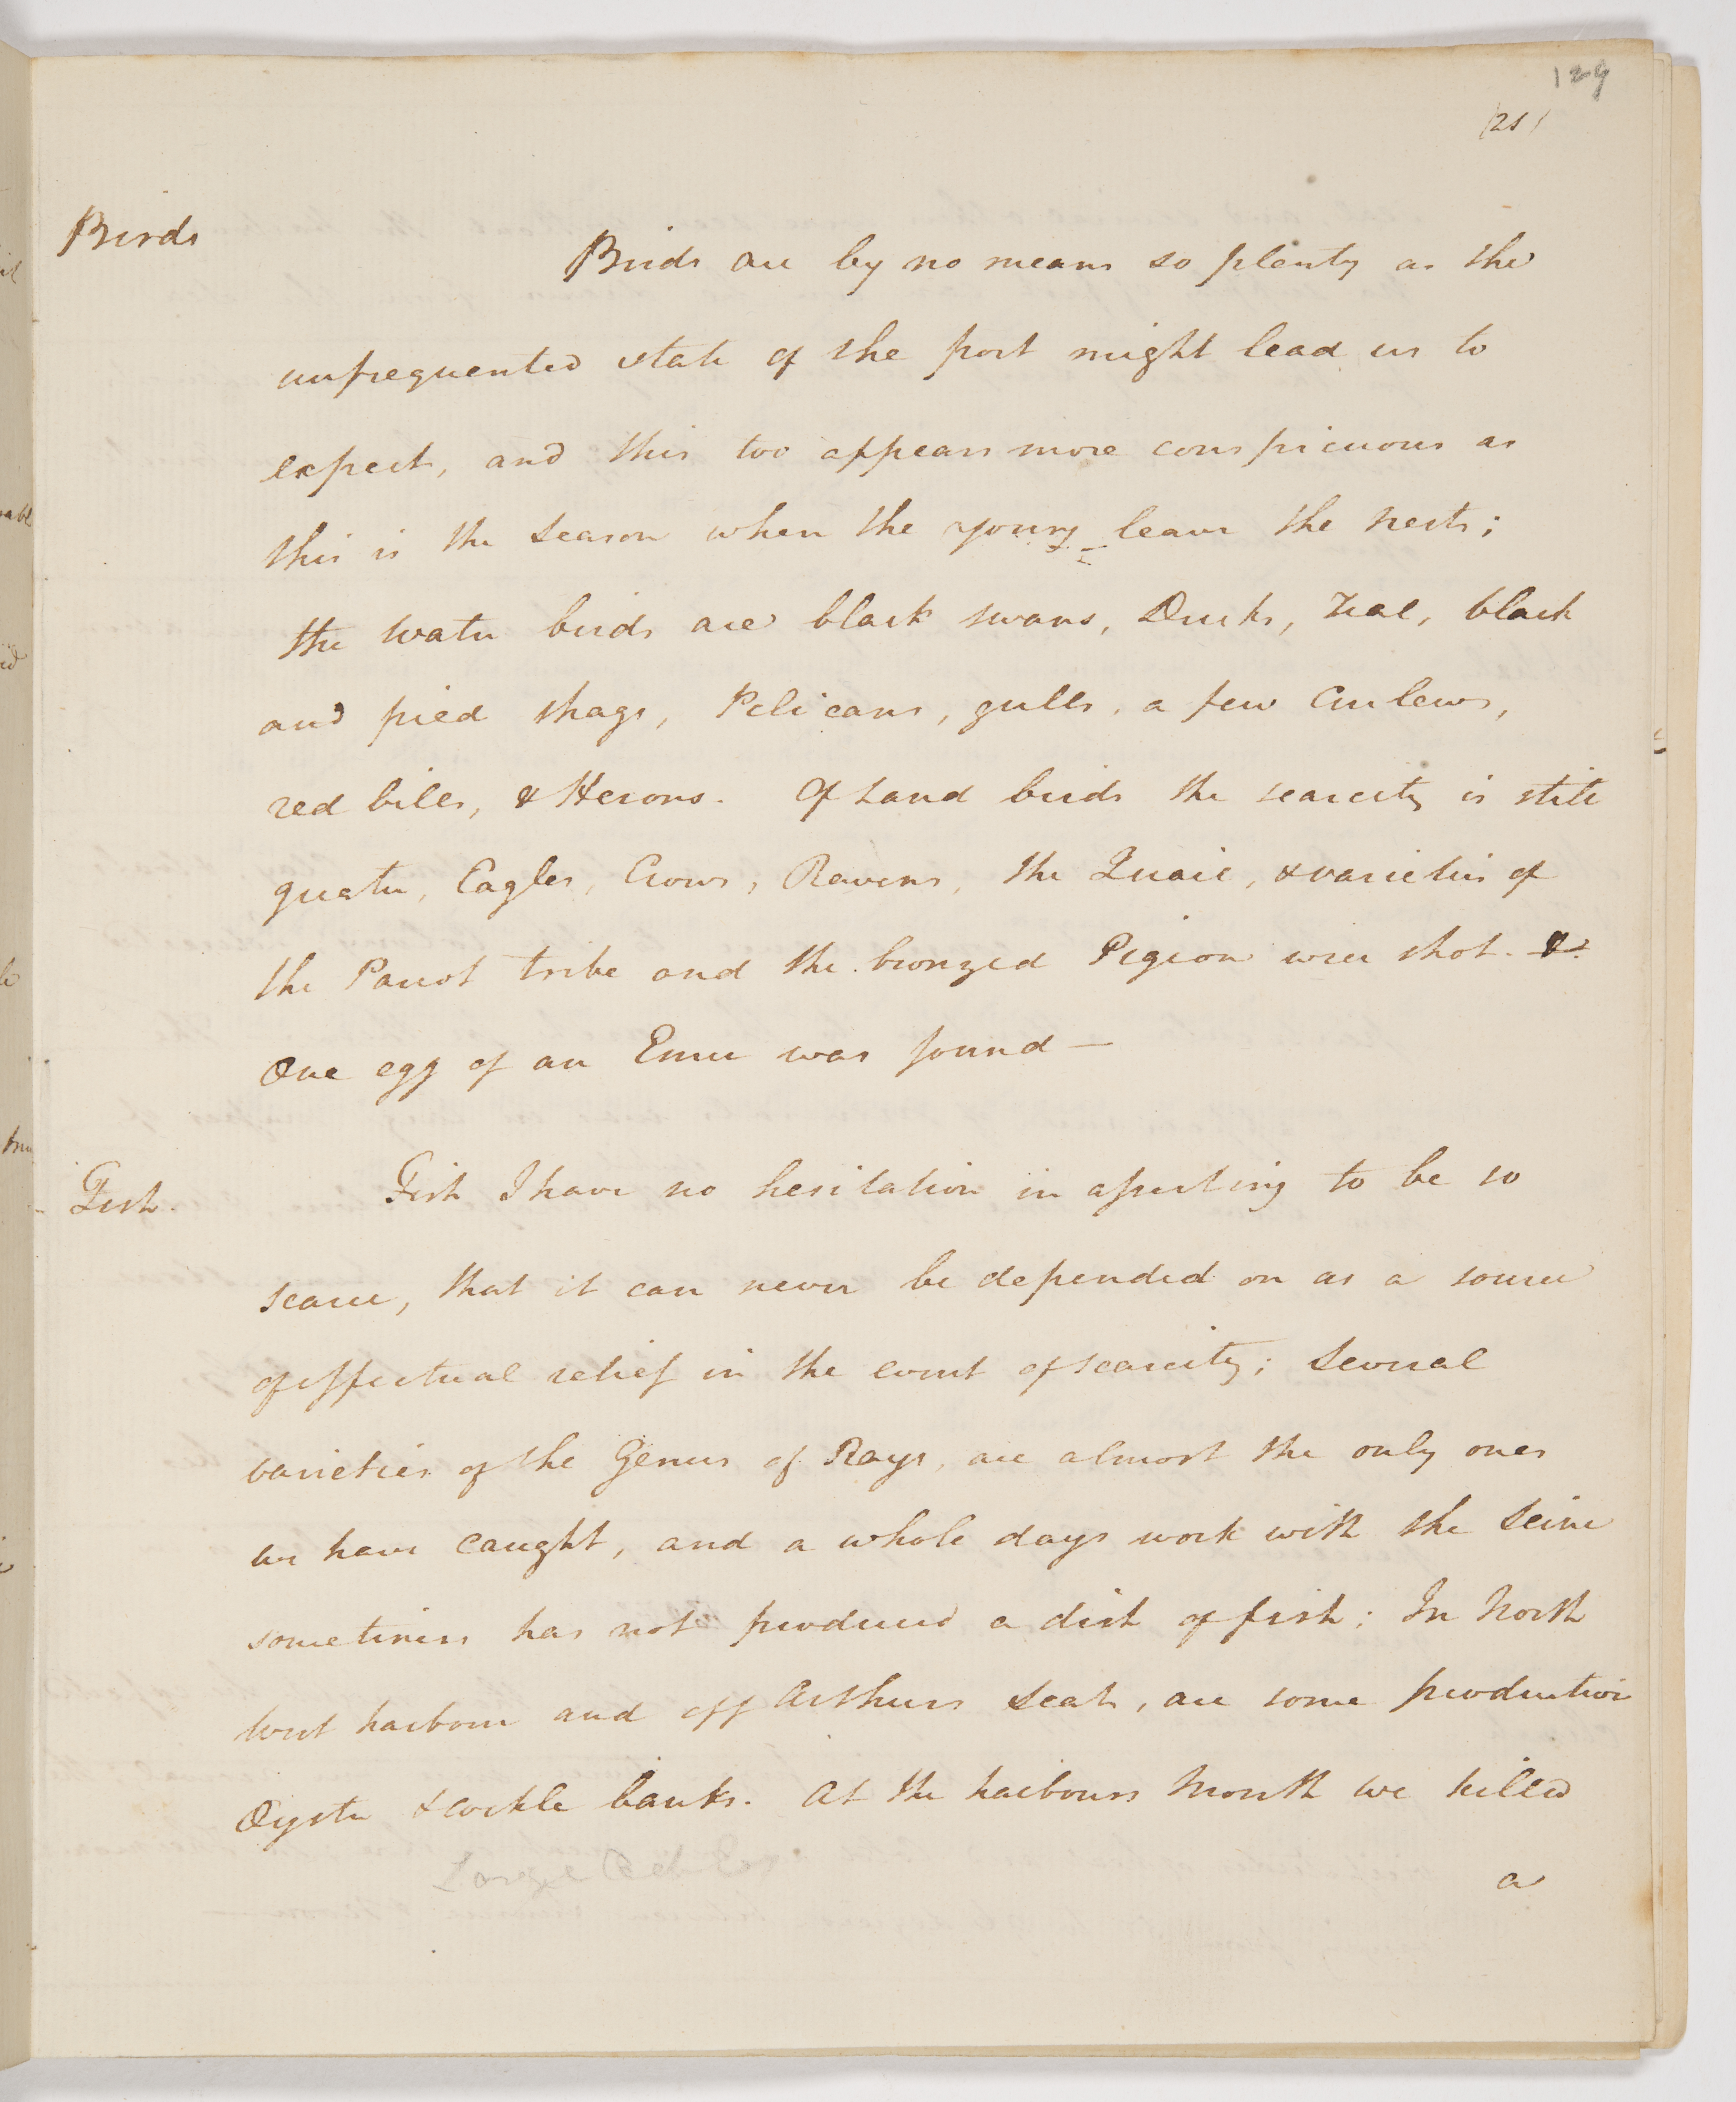 129
(21)
Birds
Birds are by no means so plenty as the
unfrequented state of the port might lead us to
expect, and this too appears more conspicuous as
this is the season when the young leave the nests;
the water birds are black swans, Ducks, Teal, black
and pied shags, Pelicans, gulls, a few Curlews,
red bills, & Herons. Of Land birds the scarcity is still
greater, Eagles, Crows, Ravens, the Quail, & varieties of
the Parrot tribe and the bronzed Pigeon were shot. &
One egg of an Emu was found —
Fish.
Fish I have no hesitation in asserting to be so
scarce, that it can never be depended on as a source
of effectual relief in the event of scarcity; Several
varieties of the Genus of Rays, are almost the only ones
we have caught, and a whole days work with the Seine
sometimes has not produced a dish of fish; In North
West harbour and off Arthurs Seat, are some production
Oyster & cockle banks. At the harbours Mouth we killed
Large
a